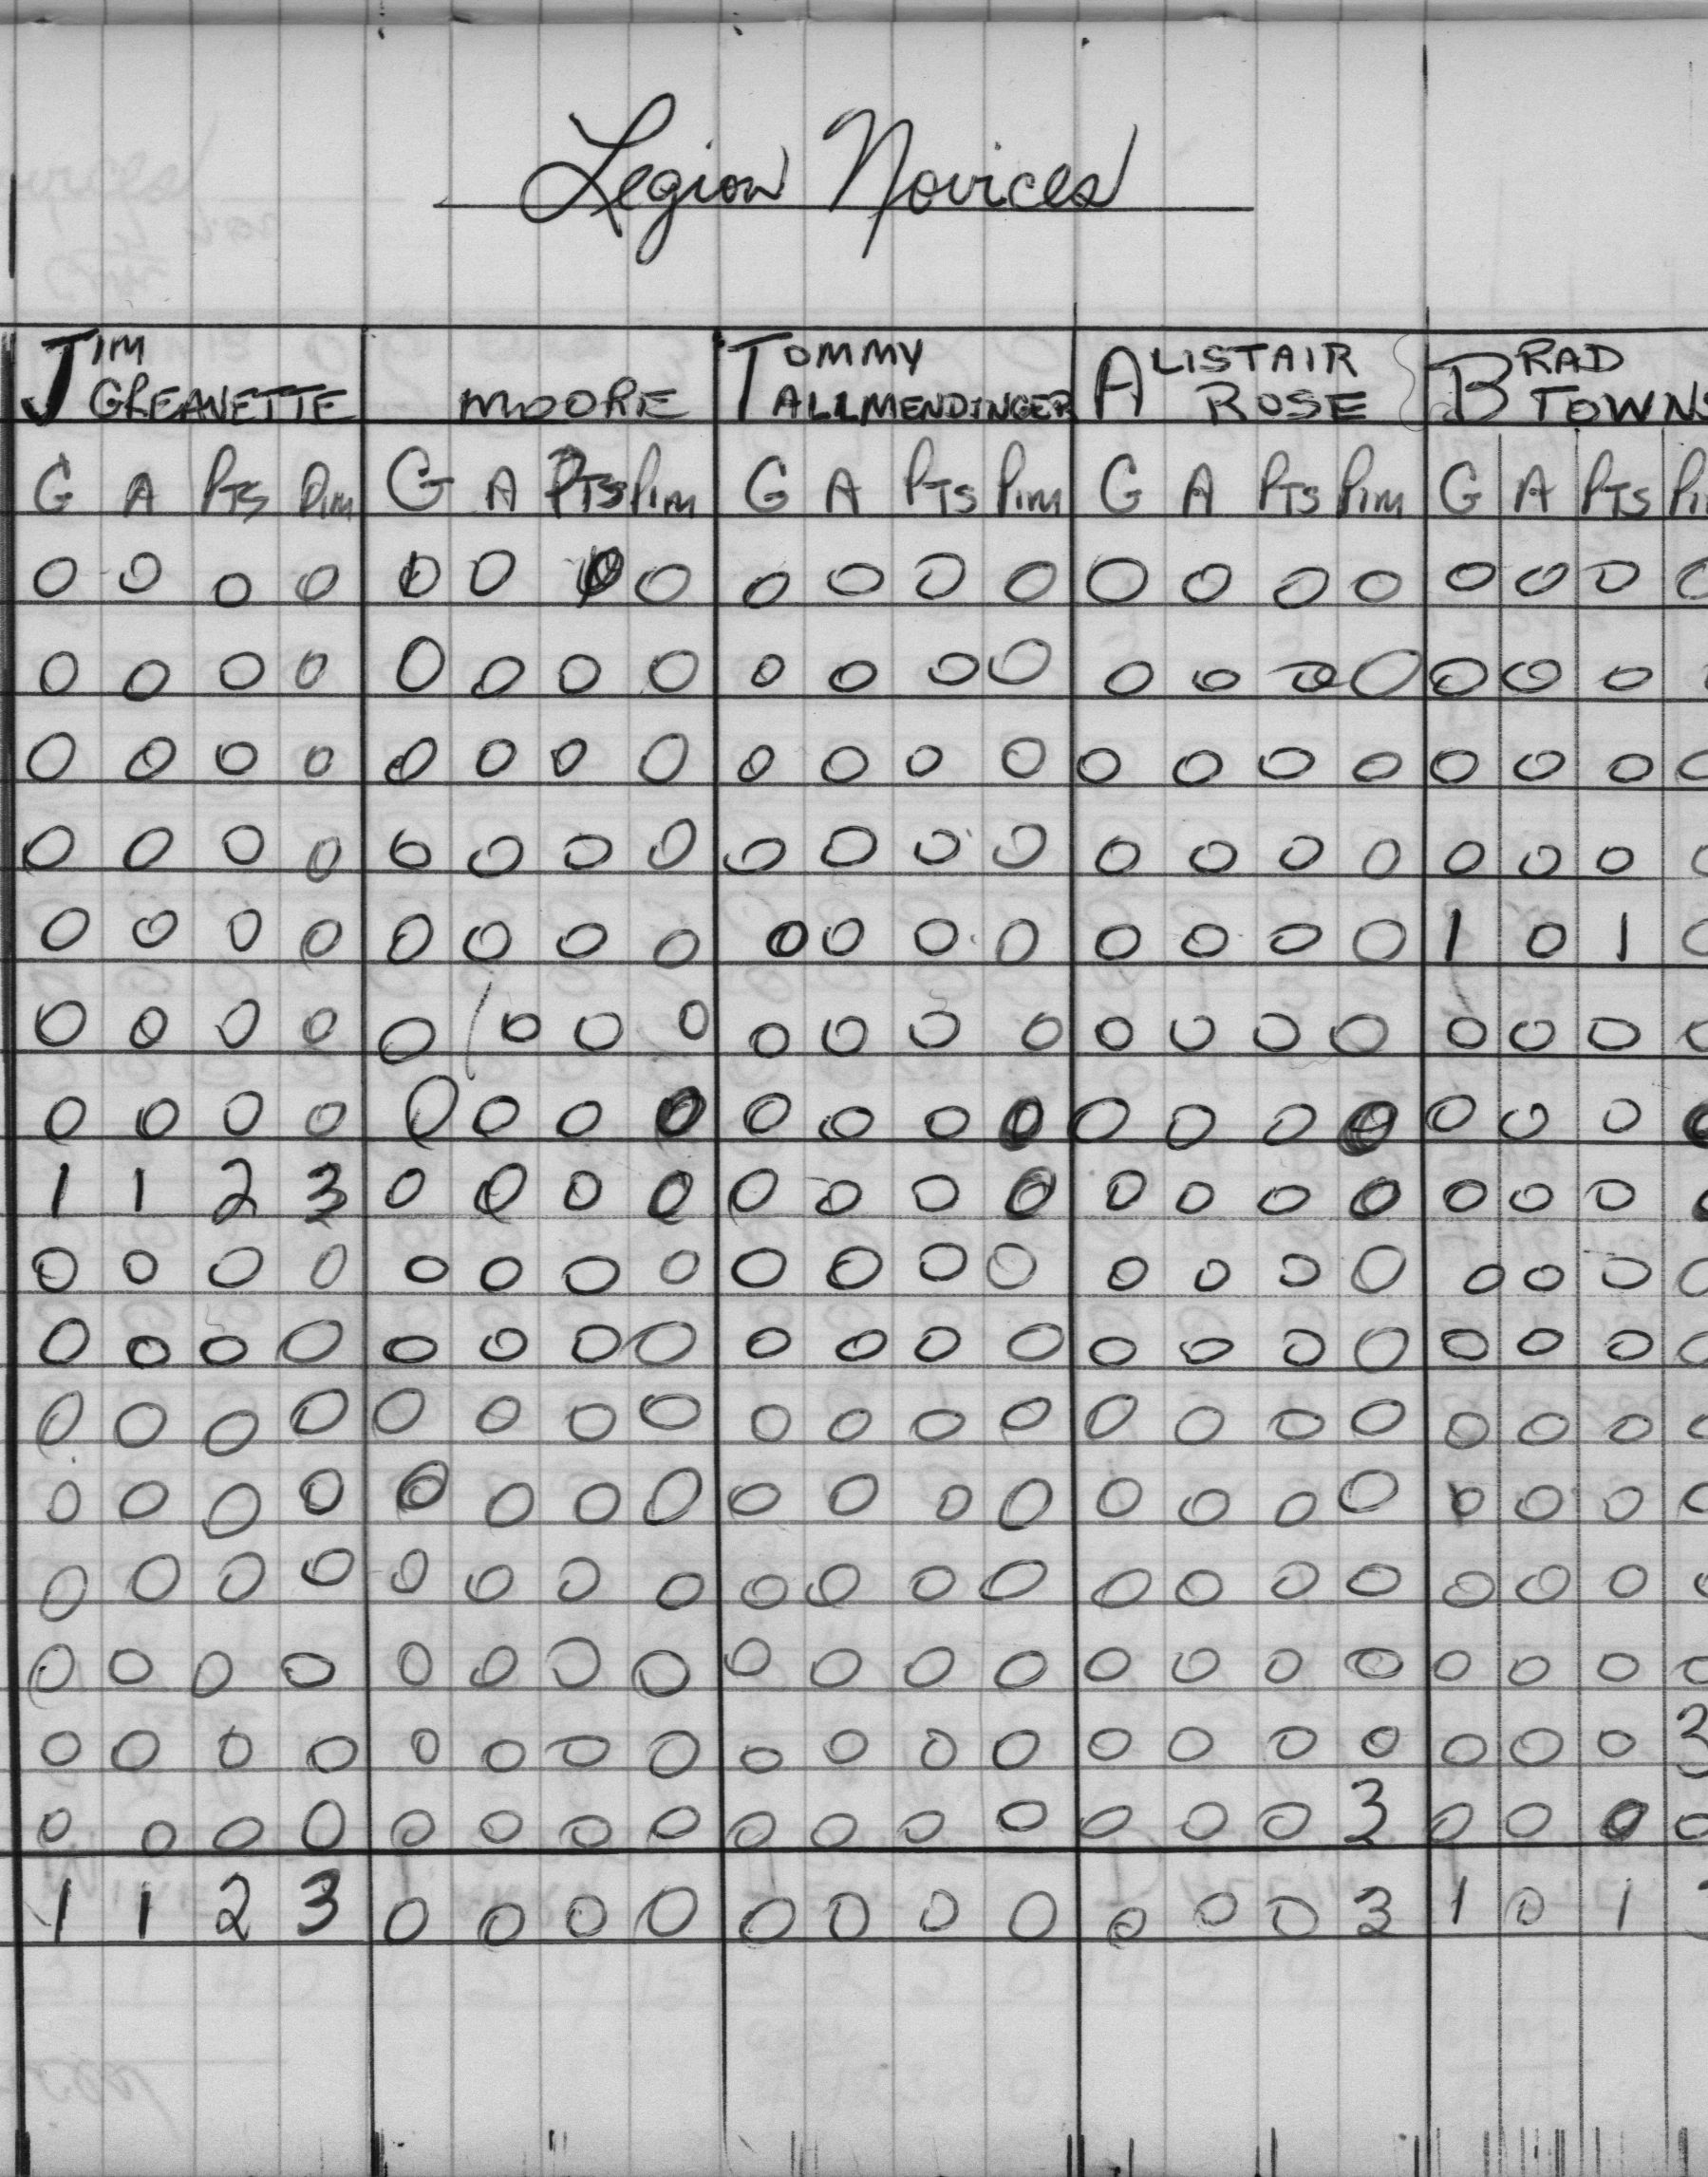 Legion Novices
JIM MOORE TOMMY ALISTAIR BRAD
GREANETTE ALLMENDINGER ROSE TOWNS
G A PTS PIM G A PTS PIM G A PTS PIM G A PTS PIM G A PTS PI
0 0 0 0 0 0 0 0 0 0 0 0 0 0 0 0 0 0 0 0
0 0 0 0 0 0 0 0 0 0 0 0 0 0 0 0 0 0 0
0 0 0 0 0 0 0 0 0 0 0 0 0 0 0 0 0 0 0 0
0 0 0 0 0 0 0 0 0 0 0 0 0 0 0 0 0 0 0 0
0 0 0 0 0 0 0 0 0 0 0 0 0 0 0 0 1 0 1 0
0 0 0 0 0 0 0 0 0 0 0 0 0 0 0 0 0 0 0 0
0 0 0 0 0 0 0 0 0 0 0 0 0 0 0 0 0 0 0 0
1 1 2 3 0 0 0 0 0 0 0 0 0 0 0 0 0 0 0 0
0 0 0 0 0 0 0 0 0 0 0 0 0 0 0 0 0 0 0 0
0 0 0 0 0 0 0 0 0 0 0 0 0 0 0 0 0 0 0 0
0 0 0 0 0 0 0 0 0 0 0 0 0 0 0 0 0 0 0 0
0 0 0 0 0 0 0 0 0 0 0 0 0 0 0 0 0 0 0 0
0 0 0 0 0 0 0 0 0 0 0 0 0 0 0 0 0 0 0 0
0 0 0 0 0 0 0 0 0 0 0 0 0 0 0 0 0 0 0 0
0 0 0 0 0 0 0 0 0 0 0 0 0 0 0 0 0 0 0 3
0 0 0 0 0 0 0 0 0 0 0 0 0 0 0 3 0 0 0 0
1 1 2 3 0 0 0 0 0 0 0 0 0 0 0 3 1 0 1